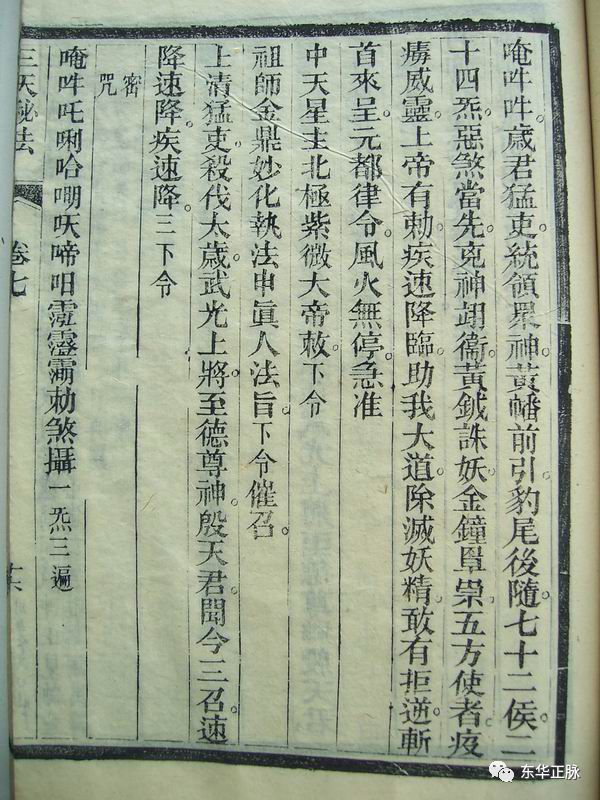 唵吽吽歲君猛吏統領眾神黃幡前引豹尾後隨七十二侯二
十四炁惡煞當先克神翊衞黃鉞誅妖金鐘罩祟五方使者疫
癘威靈上帝有勅疾速降臨助我大道除滅妖精敢有拒逆斬
首來呈元都律令風火無停急准
中天星主北極紫微大帝敕下令
祖師金鼎妙化執法申眞人法旨下令催召
上清猛吏殺伐太歲武光上將至德尊神殷天君聞今三召速
降速降疾速降三下令
密咒
唵吽吒唎哈嘲㕭啼呾霐靈霸勅煞攝一炁三遍
三天秘法 卷七
东华正脉